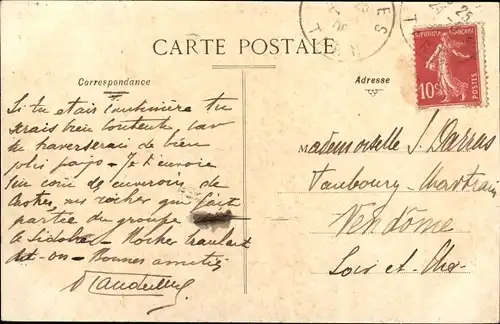 CARTE POSTALE
Correspondance
Adresse
REPUBLIQUE FRANÇAISE
10c
POSTES
Si tu étais tu
serais bien contente, car
tu traverserais de bien
jolis pays - Je t'envoie
un coin de environs de
Castres, un rocher qui fait
partie du groupe
le Sidobre - Rocher tremblant
dit-on - Bonnes amitiés
Mademoiselle S.
Faubourg Chartrain
Vendôme
Loir et Cher